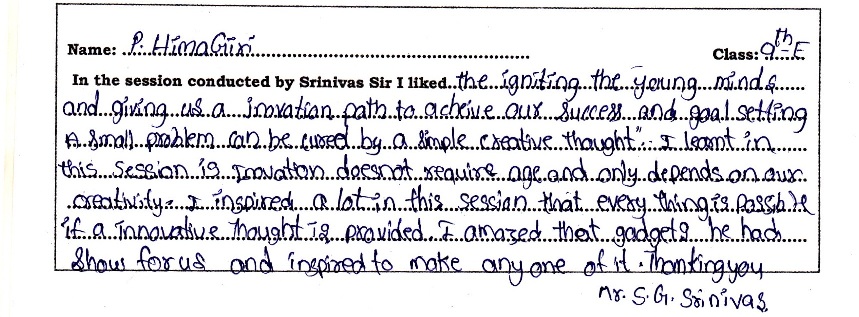 Name: P. HimaGiri Class: 9th-E
In the session conducted by Srinivas Sir I liked the igniting the young minds
and giving us a inovation path to acheive our success and goal setting
A small problem can be cured by a simple creative thought". I learnt in
this session is Inovation doesnot require age and only depends on our
creativity. I inspired a lot in this session that every thing is possible
if a Innovative thought is provided. I amazed that gadgets he had
show for us and inspired to make any one of it. Thanking you
Mr. S.G. Srinivas